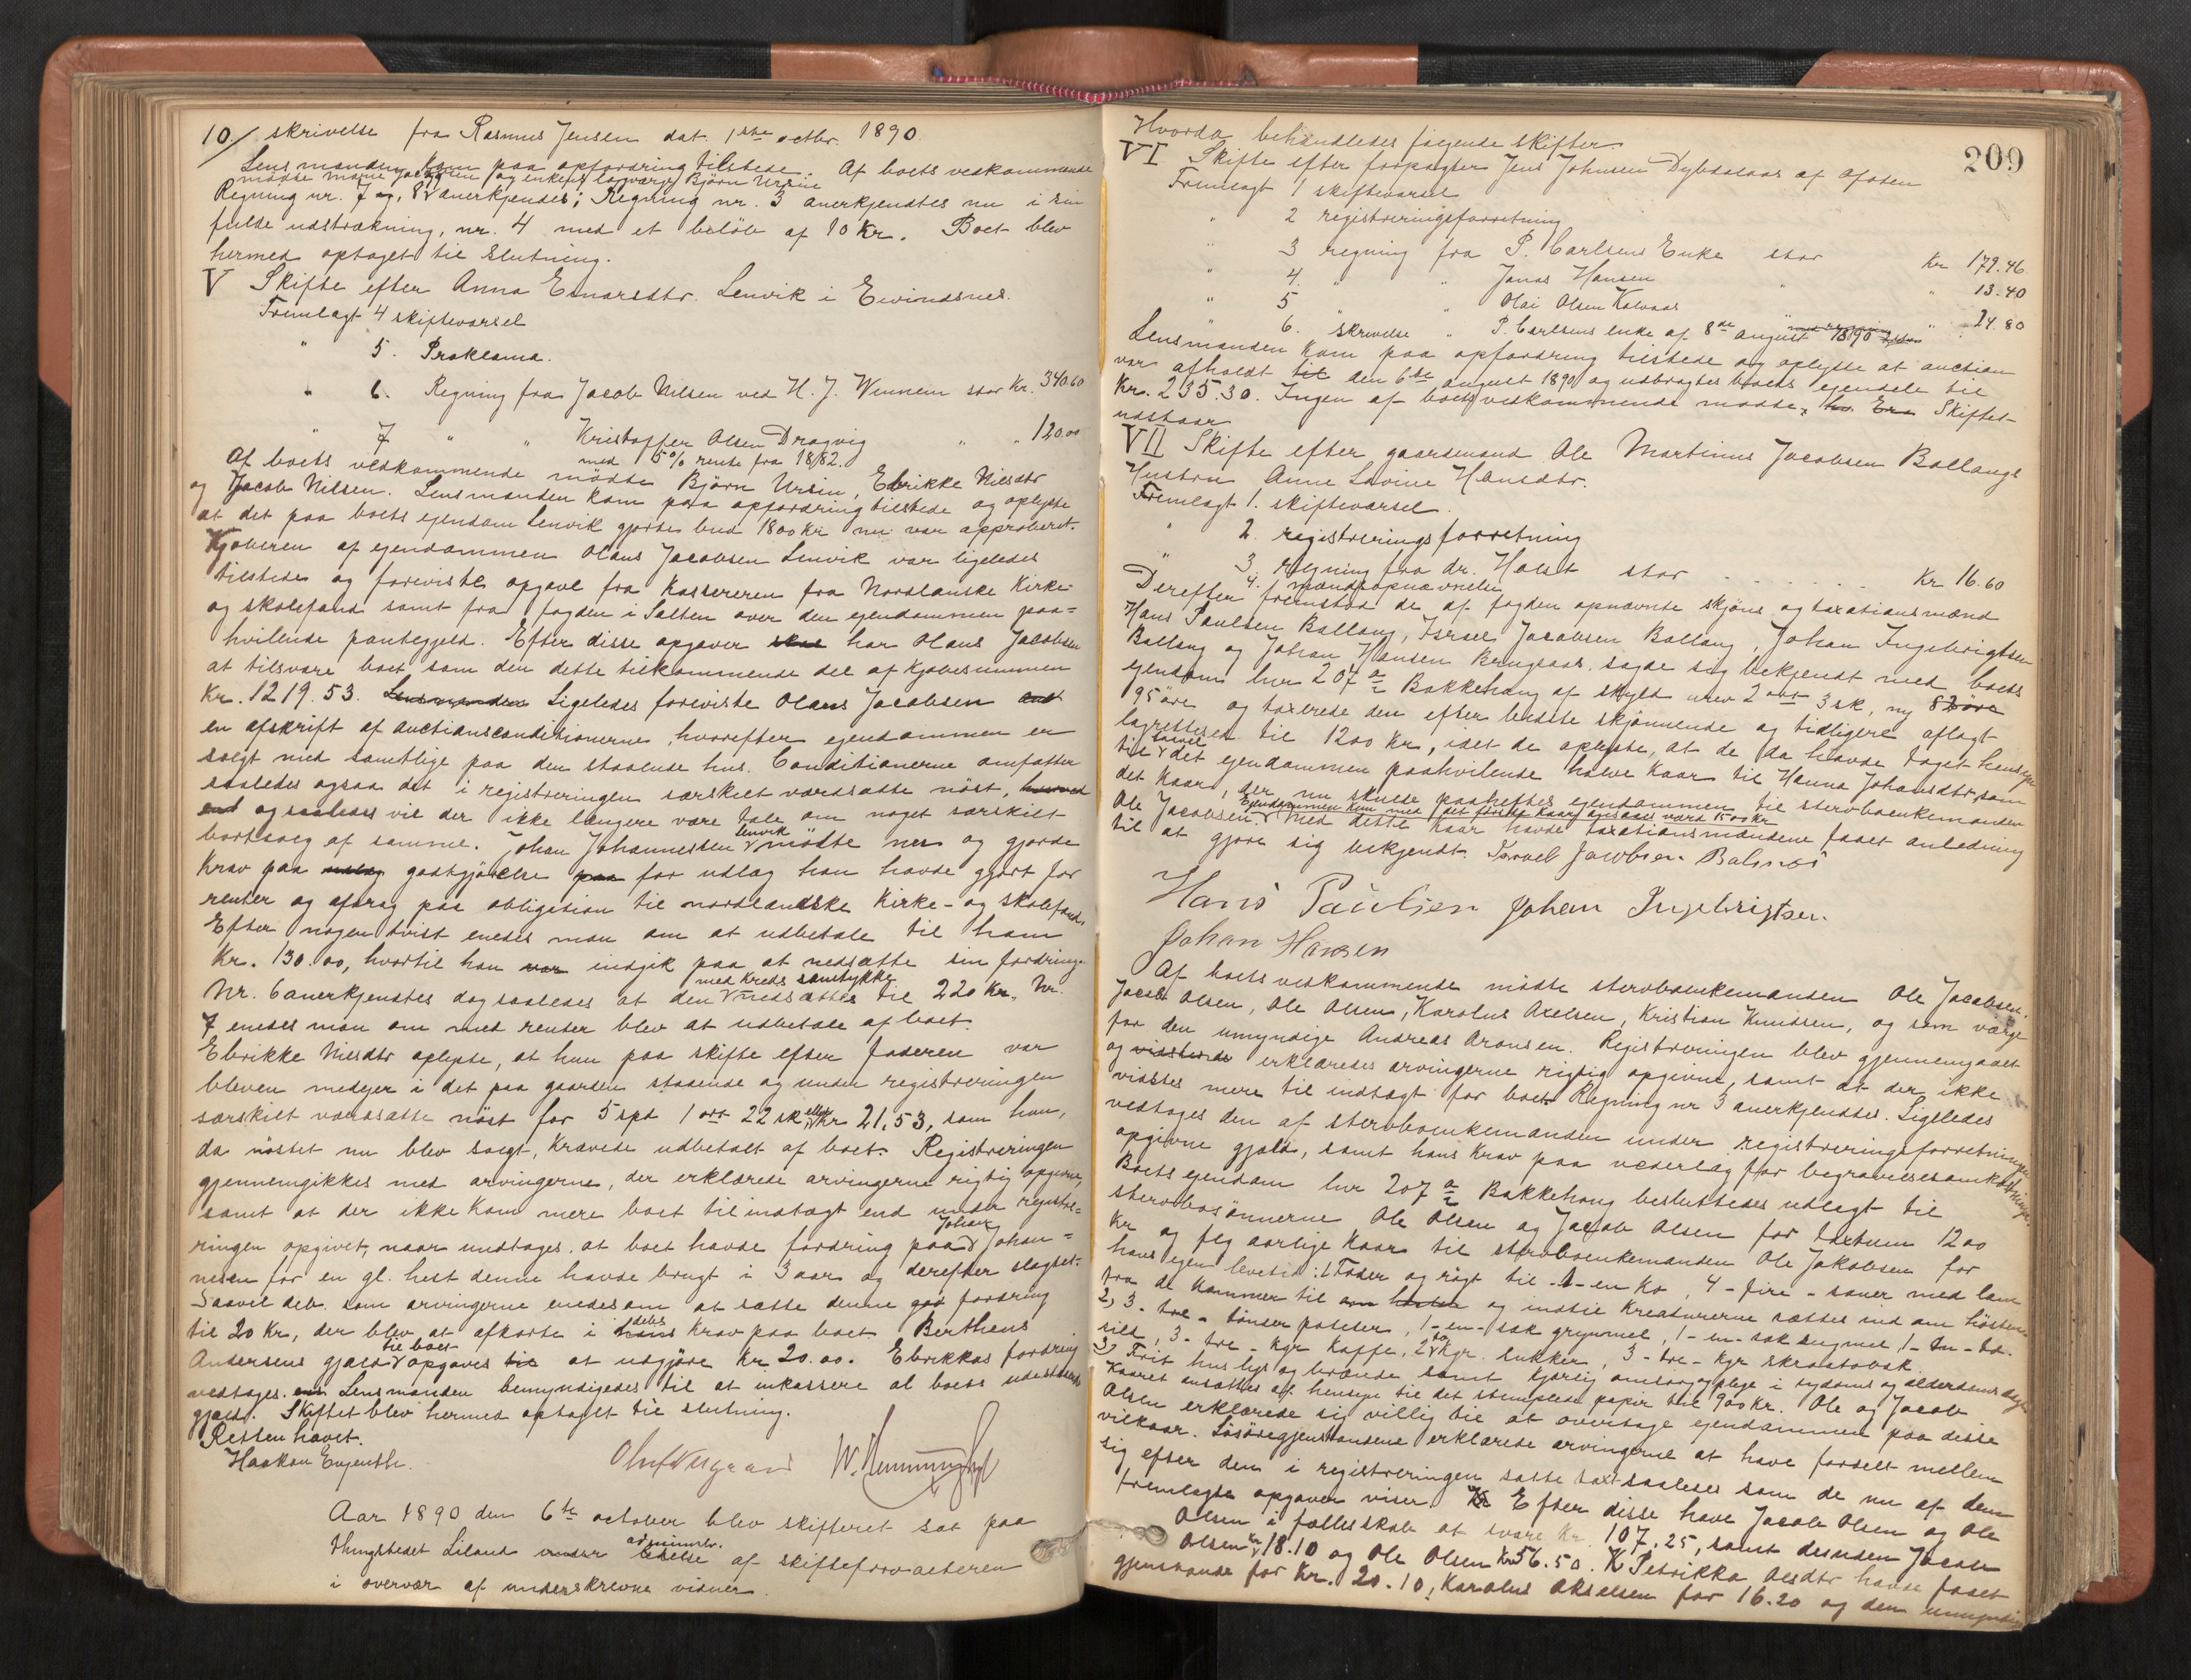 10./ skrivelse fra Rasmus Jensen dat. 1ste octbr. 1890.
Lensmanden kom paa opfordring tilstede. Af boets vedkommende
mødte og enkens lagværge Björn Ursin
Regning nr. 7 og 8 anerkjendes; Regning nr. 3 anerkjendtes nu i sin
fulde udstrækning, nr. 4 med et beløb af 10 Kr. Boet blev
hermed optaget til slutning.
V Skifte efter Anna Enarsdtr. Lenvik i Eivindsnes.
Fremlagt 4 skiftevarsel
" 5. Proklama.
" 6. Regning fra Jacob Nilsen ved H. J. Winnem stor Kr. 340.60
" 7 " " Kristoffer Olsen Dragvig " " 120.00
med 5% rente fra 1882.
Af boets vedkommende mødte Björn Ursin, Ebrikke Nilsdtr
og Jacob Nilsen. Lensmanden kom paa opfordring tilstede og oplyste
at det paa boets ejendom Lenvik gjorte bud 1800 kr nu var approberet.
Kjøberen af ejendommen Olaus Jacobsen Lenvik var ligeledes
tilstede og foreviste opgave fra Kassereren fra Nordlanske Kirke-
og skolefond samt fra fogden i Salten over den ejendommen paa=
hvilende pantegjeld. Efter disse opgaver skal har Olaus Jacobsen
at tilsvare boet som den dette tilkommende del af kjøbesummen
Kr. 1219.53. Lensmanden Ligeledes foreviste Olaus Jacobsen
en afskrift af auctionsconditionerne, hvorefter ejendommen er
solgt med samtlige paa den staaende hus. Conditionerne omfatter
saaledes ogsaa det i registreringen særskilt værdsatte nöst,
og saaledes vil der ikke længere være tale om noget særskilt
bortsalg af samme. Johan Johannessen Lenvik mødte nu og gjorde
krav paa godtgjörelse paa for udlæg han havde gjort for
renter og afdrag paa obligation til nordlandske Kirke- og skolefond.
Efter nogen tvist enedes man om at udbetale til ham
Kr. 130.00, hvortil han var indgik paa at nedsætte sin fordring.
Nr. 6 anerkjendtes dog saaledes at den med Kreds samtykke nedsættes til 220 Kr. Nr.
7 enedes man om med renter blev at udbetale af boet.
Ebrikke Nilsdtr oplyste, at hun paa skifte efter faderen var
bleven medejer i det paa gaarden staaende og under registreringen
særskilt værdsatte nöst for 5 spd 1 ort 22 sk eller Kr 21,53, som hun,
da nöstet nu blev solgt, krævede udbetalt af boet. Registreringen
gjennemgikkes med arvingerne, der erklærede arvingerne rigtig opgivne,
samt at der ikke kom mere boet til indtægt end under registre=
ringen opgivet, naar undtages at boet havde fordring paa Johan Johan=
nesen for en gl. hest denne havde brugt i 3 aar og derefter slagtet.
Saavel deb. som arvingerne enedes om at sætte denne fordring
til 20 kr, der blev at afkorte i debs krav paa boet. Berthens
Andersens gjæld til boet opgaves til at udgjøre Kr 20.00. Ebrikkas fordring
vedtages. Lensmanden bemyndigedes til at inkassere al boets udestaaende
gjæld. Skiftet blev hermed optaget til slutning.
Retten hævet.
Haakon Evjenth.
Aar 1890 den 6te october blev skifteret sat paa
thingstedet Liland under adminstr. ledelse af skifteforvalteren
i overvær af underskrevne vidner.
209
Hvorda behandledes følgende skifter
VI Skifte efter forpagter Jens Johnsen Dybdalaas af Ofoten
Fremlagt 1 skiftevarsel
" 2 registreringsforretning
" 3 regning fra P. Carlsens Enke stor Kr 179.46
" 4. " " Jonas Hansen " " 13.40
" 5 " Olai Olsen Kalvaas " 24.80
6. skrivelse " P. Carlsens enke af 8de august 1890
Lensmanden kom paa opfordring tilstede og oplyste at auction
var afholdt til den 6te august 1890 og udbragtes boets ejendele til
Kr. 235.30. Ingen af boets vedkommende mødte. Skiftet
udstaar
VII Skifte efter gaardmand Ole Martinus Jacobsen Ballangs
Hustru Anne Lovine Hansdtr.
Fremlagt 1. skiftevarsel.
" 2. registreringsforretning
" 3. regning fra dr. Holst stor . . . . . . . Kr 16.60
4. mandsopnævnelse
Derefter fremstod de af fogden opnævnte skjöns og taxationsmænd
Hans Paulsen Ballang, Israel Jacobsen Ballang, Johan Ingebrigtsen
Ballang og Johan Hansen Brugsaas. sagde sig bekjendt med boets
ejendom lnr 207 a/2 Bakkehaug af skyld urev 2 ort 3 sk, ny 82 öre
95 öre og taxerede den efter bedste skjønnende og tidligere aflagt
lagrettesed til 1200 kr, idet de oplyste, at de da havde taget hensyn
til saavel det ejendommen paahvilende halve Kaar til Hanna Johansdtr, som
det kaar, der nu skulde paaheftes ejendommen til stervboenkemanden
Ole Jacobsen. Ejendommen kun med det förste kaar ansaaes værd 1500 kr
Med dette kaar havde taxationsmændene faaet anledning
til at gjøre sig bekjendt. Isrvel Jacobsen Balsnes
Hans Paulsen Johan Ingebrigtsen.
Johan Hansen
Af boets vedkommende mødte stervboenkemanden Ole Jacobsen.
Jacob Olsen, Ole Olsen, Karolus Axelsen, Kristian Knudsen, og som værge
for den umyndige Andreas Aronsen. Registreringen blev gjennemgaaet
og erklæredes arvingerne rigtig opgivne, samt at der ikke
vidstes mere til indtægt for boet. Regning nr 3 anerkjendtes. Ligeledes
vedtoges den af stervboenkemanden under registreringsforretningen
opgivne gjæld, samt hans krav paa vederlag for begravelsesomkostninger.
Boets ejendom lnr 207 a/2 Bakkehaug besluttedes udlagt til
stervbosønnerne Ole Olsen og Jacob Olsen for taxtsum 1200
kr og flg aarlige kaar til stervboenkemanden Ole Jakobsen for
hans egen levetid: 1 Foder og rögt til -1- en ko, 4 - fire - souer med lam
fra de kommer til og indtil kreaturerne sættes ind om hösten
2, 3 - tre - tönder poteter, 1 - en - sæk grynmel, 1 - en - sæk rugmel, 1 - en - td.
sild, 3 - tre - kgr Kaffe, 2 to kgr. sukker, 3 - tre - kgr skraatobak.
3, Frit hus lys og brænde samt kjærlig omsorg og pleje i sygdoms og alderdoms dage
Kaaret ansættes af hensyn til det stemplede papir til 900 kr. Ole og Jacob
Olsen erklærede sig villig til at overtage ejendommen paa disse
vilkaar. Lösöregjenstandene erklærede arvingerne at have fordelt mellem
sig efter den i registreringen satte taxt saaledes som de nu af dem
fremlagte opgaver viser. Efter disse have Jacob Olsen og Ole
Olsen i fællesskab at svare kr. 107.25, samt desuden Jacob
Olsen kr 18.10 og Ole Olsen Kr 56.50. Petrikka Olsdtr havde faaet
gjenstande for kr. 20.10, Karolus Akselsen for 16.20 og den umyndige